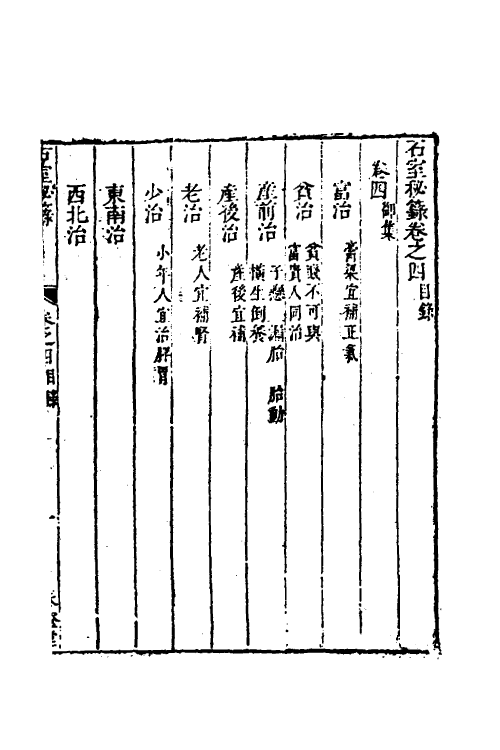 石室秘籙卷之四目錄
卷四御集
富治
膏粱宜補正氣
貧治
貧賤不可與
富貴人同治
産前治
子懸 漏胎 胎動
橫生倒養
産後治
産後宜補
老治
老人宜補腎
少治
小年人宜治脾胃
東南治
西北治
石室秘籙
卷之四目錄
一